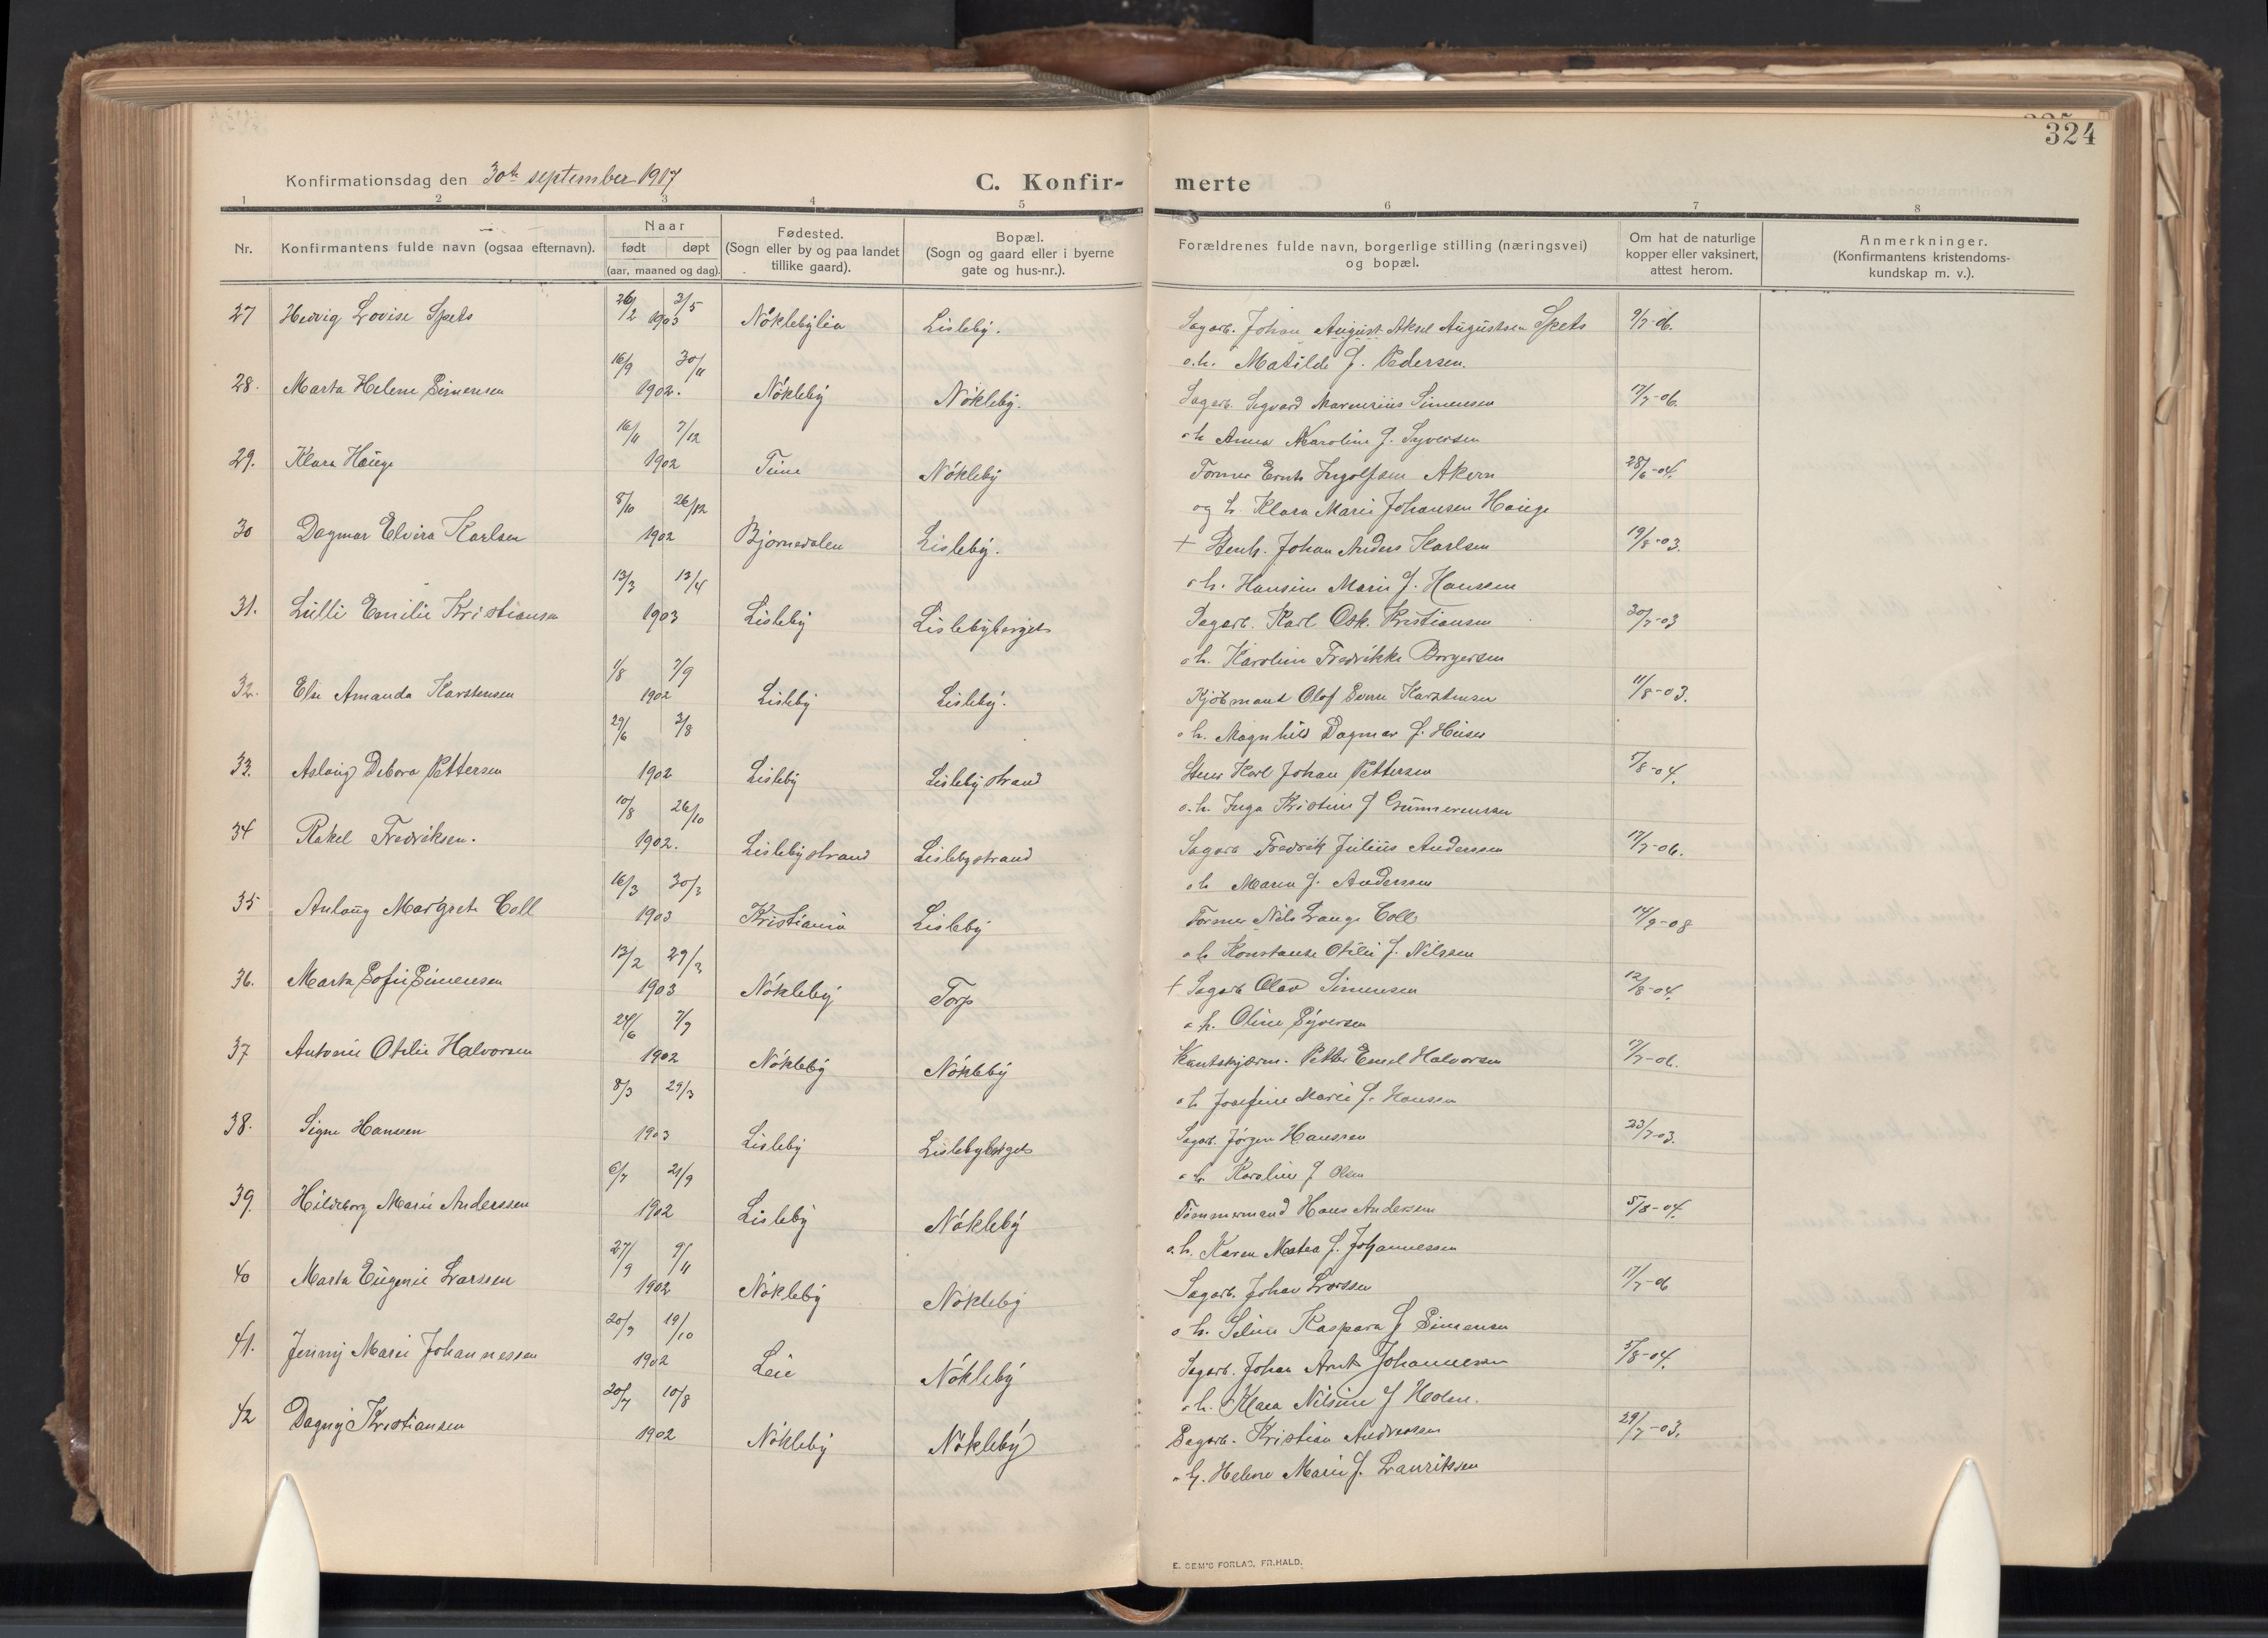 324
Konfirmationsdag den 30te september 1917
C. Konfir- merte
1 2 3 4 5 6 7 8
Nr.
Konfirmantens fulde navn (ogsaa efternavn).
Naar
født døpt
(aar, maaned og dag).
Fødested.
(Sogn eller by og paa landet
tillike gaard).
Bopæl.
(Sogn og gaard eller i byerne
gate og hus-nr.).
Forældrenes fulde navn, borgerlige stilling (næringsvei)
og bopæl.
Om hat de naturlige
kopper eller vaksinert,
attest herom.
Anmerkninger.
(Konfirmantens kristendoms-
kundskap m. v.).
27 Hedvig Lovise Spets 26/2 3/5 1903 Nöklebylia Lisleby. Sagarb. Johan August Aksel Augustsen Spets 9/7-06.
o.h. Matilde f. Pedersen.
28. Marta Helene Simensen 16/9 30/11 1902. Nökleby Nökleby. Sagarb. Sigvard Marensius Simensen 17/7-06.
o h Anna Karoline f. Syversen
29. Klara Hauge 16/11 7/12 1902 Tune Nökleby Former Ernst Ingolfsen Akern 28/6-04.
og h. Klara Marie Johansen Hauge
30 Dagmar Elvira Karlsen 8/10 26/12 1902 Bjørnedalen Lisleby. + Stenh. Johan Anders Karlsen 19/8-03.
o h. Hansine Marie f. Hanssen
31. Lulli Emilie Kristiansen 13/3 13/4 1903 Lisleby Lislebyberget Sagarb. Karl Osk. Kristiansen 30/7-03
o h. Karoline Fredrikke Borgersen
32. Else Amanda Karstensen 1/8 7/9 1902 Lisleby Lisleby. Kjøbmand Olof Karstensen 11/8-03.
o h. Magnhild Dagmar f.
33. Aslaug Debora Pettersen 29/6 3/8 1902 Lisleby Lisleby strand Karl Johan Pettersen 5/8-04.
o. h. Inga Kristine f Gunnerussen
34 Rakel Fredriksen. 10/8 26/10 1902. Lislebystrand Lislebystrand Sagarb Fredrik Julius Anderssen 17/7-06.
o h Maren f. Anderssen
35 Anlaug Margrete Coll 16/3 30/3 1903 Kristiania Lisleby Former Nils Lange Coll 14/9-08
o h Konstanse Otilie f. Nilssen
36. Marta Sofie Simensen 13/2 29/3 1903 Nökleby Torp + Sagarb Olav Simensen 12/8-04.
o h. Oline Syversen
37 Antonie Otilie Halvorsen 24/6 7/9 1902 Nökleby Nökleby Kantskjærer. Petter Emil Halvorsen 17/7-06.
o h Josefine Marie f. Hansen
38. Signe Hanssen 8/3 29/3 1903 Lisleby Lislebyberget Sagarb. Jörgen Hanssen 23/7-03.
o h. Karoline f Olsen
39. Hildeborg Marie Anderssen 6/7 21/9 1902 Lisleby Nökleby Tömmermand Hans Andersen 5/8-04.
o. h. Karen Matea f. Johannessen
40 Marta Eugenie Larssen 27/9 9/11 1902 Nökleby Nökleby Sagarb. Johan Larssen 17/7-06
o h. Seline Kaspara f Simensen
41. Jenny Marie Johannessen 20/9 19/10 1902 Leie Nökleby Sagarb. Johan Arnt Johannessen 5/8-04.
o h. Klara Nilsine f Holm.
42 Dagny Kristiansen 20/7 10/8 1902 Nökleby Nökleby Sagarb. Kristian Andreassen 29/7-03.
o h. Helene Marie f. Lauritssen
E. SEM'S FORLAG, FR.HALD.